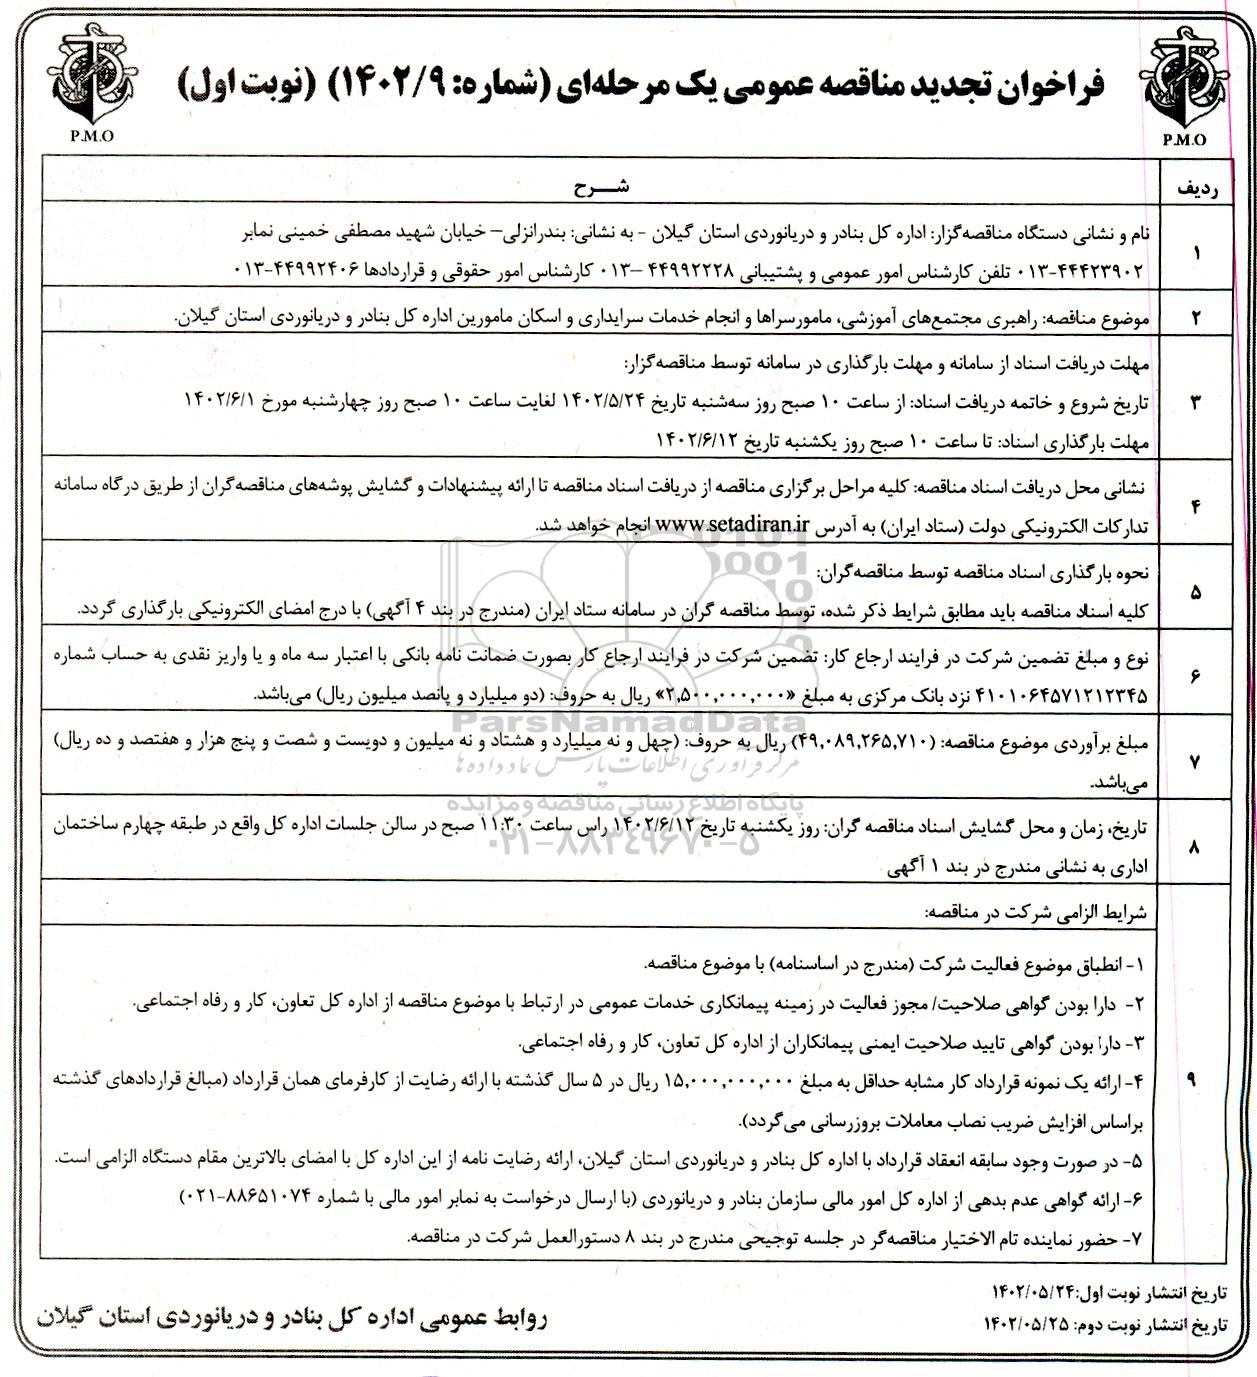 فراخوان تجدید مناقصه عمومی یک مرحله‌ای (شماره: ۱۴۰۲/۹) (نوبت اول)
P.M.O
P.M.O
ردیف
شـــرح
۱
نام و نشانی دستگاه مناقصه‌گزار: اداره کل بنادر و دریانوردی استان گیلان - به نشانی: بندرانزلی– خیابان شهید مصطفی خمینی نمابر
۰۱۳-۴۴۴۲۳۹۰۲ تلفن کارشناس امور عمومی و پشتیبانی ۴۴۹۹۲۲۲۸ –۰۱۳ کارشناس امور حقوقی و قراردادها ۰۱۳-۴۴۹۹۲۴۰۶
۲
موضوع مناقصه: راهبری مجتمع‌های آموزشی، مامورسراها و انجام خدمات سرایداری و اسکان مامورین اداره کل بنادر و دریانوردی استان گیلان.
۳
مهلت دریافت اسناد از سامانه و مهلت بارگذاری در سامانه توسط مناقصه‌گزار:
تاریخ شروع و خاتمه دریافت اسناد: از ساعت ۱۰ صبح روز سه‌شنبه تاریخ ۱۴۰۲/۵/۲۴ لغایت ساعت ۱۰ صبح روز چهارشنبه مورخ ۱۴۰۲/۶/۱
مهلت بارگذاری اسناد: تا ساعت ۱۰ صبح روز یکشنبه تاریخ ۱۴۰۲/۶/۱۲
۴
نشانی محل دریافت اسناد مناقصه: کلیه مراحل برگزاری مناقصه از دریافت اسناد مناقصه تا ارائه پیشنهادات و گشایش پوشه‌های مناقصه‌گران از طریق درگاه سامانه
تدارکات الکترونیکی دولت (ستاد ایران) به آدرس www.setadiran.ir انجام خواهد شد.
۵
نحوه بارگذاری اسناد مناقصه توسط مناقصه‌گران:
کلیه اسناد مناقصه باید مطابق شرایط ذکر شده، توسط مناقصه گران در سامانه ستاد ایران (مندرج در بند ۴ آگهی) با درج امضای الکترونیکی بارگذاری گردد.
۶
نوع و مبلغ تضمین شرکت در فرایند ارجاع کار: تضمین شرکت در فرایند ارجاع کار بصورت ضمانت نامه بانکی با اعتبار سه ماه و یا واریز نقدی به حساب شماره
۴۱۰۱۰۶۴۵۷۱۲۱۲۳۴۵ نزد بانک مرکزی به مبلغ «۲,۵۰۰,۰۰۰,۰۰۰» ریال به حروف: (دو میلیارد و پانصد میلیون ریال) می‌باشد.
ParsNamadData
۷
مبلغ برآوردی موضوع مناقصه: (۴۹,۰۸۹,۲۶۵,۷۱۰) ریال به حروف: (چهل و نه میلیارد و هشتاد و نه میلیون و دویست و شصت و پنج هزار و هفتصد و ده ریال)
می‌باشد.
مرکز فرآوری اطلاعات پارس نماد داده‌ها
پایگاه اطلاع رسانی مناقصه و مزایده
۸
تاریخ، زمان و محل گشایش اسناد مناقصه گران: روز یکشنبه تاریخ ۱۴۰۲/۶/۱۲ راس ساعت ۱۱:۳۰ صبح در سالن جلسات اداره کل واقع در طبقه چهارم ساختمان
۰۲۱-۸۸۳۴۹۶۷۰-۵
اداری به نشانی مندرج در بند ۱ آگهی
۹
شرایط الزامی شرکت در مناقصه:
۱- انطباق موضوع فعالیت شرکت (مندرج در اساسنامه) با موضوع مناقصه.
۲- دارا بودن گواهی صلاحیت/ مجوز فعالیت در زمینه پیمانکاری خدمات عمومی در ارتباط با موضوع مناقصه از اداره کل تعاون، کار و رفاه اجتماعی.
۳- دارا بودن گواهی تایید صلاحیت ایمنی پیمانکاران از اداره کل تعاون، کار و رفاه اجتماعی.
۴- ارائه یک نمونه قرارداد کار مشابه حداقل به مبلغ ۱۵,۰۰۰,۰۰۰,۰۰۰ ریال در ۵ سال گذشته با ارائه رضایت از کارفرمای همان قرارداد (مبالغ قراردادهای گذشته
براساس افزایش ضریب نصاب معاملات بروزرسانی می‌گردد).
۵- در صورت وجود سابقه انعقاد قرارداد با اداره کل بنادر و دریانوردی استان گیلان، ارائه رضایت نامه از این اداره کل با امضای بالاترین مقام دستگاه الزامی است.
۶- ارائه گواهی عدم بدهی از اداره کل امور مالی سازمان بنادر و دریانوردی (با ارسال درخواست به نمابر امور مالی با شماره ۰۲۱-۸۸۶۵۱۰۷۴)
۷- حضور نماینده تام الاختیار مناقصه‌گر در جلسه توجیحی مندرج در بند ۸ دستورالعمل شرکت در مناقصه.
تاریخ انتشار نوبت اول:۱۴۰۲/۰۵/۲۴
تاریخ انتشار نوبت دوم: ۱۴۰۲/۰۵/۲۵
روابط عمومی اداره کل بنادر و دریانوردی استان گیلان